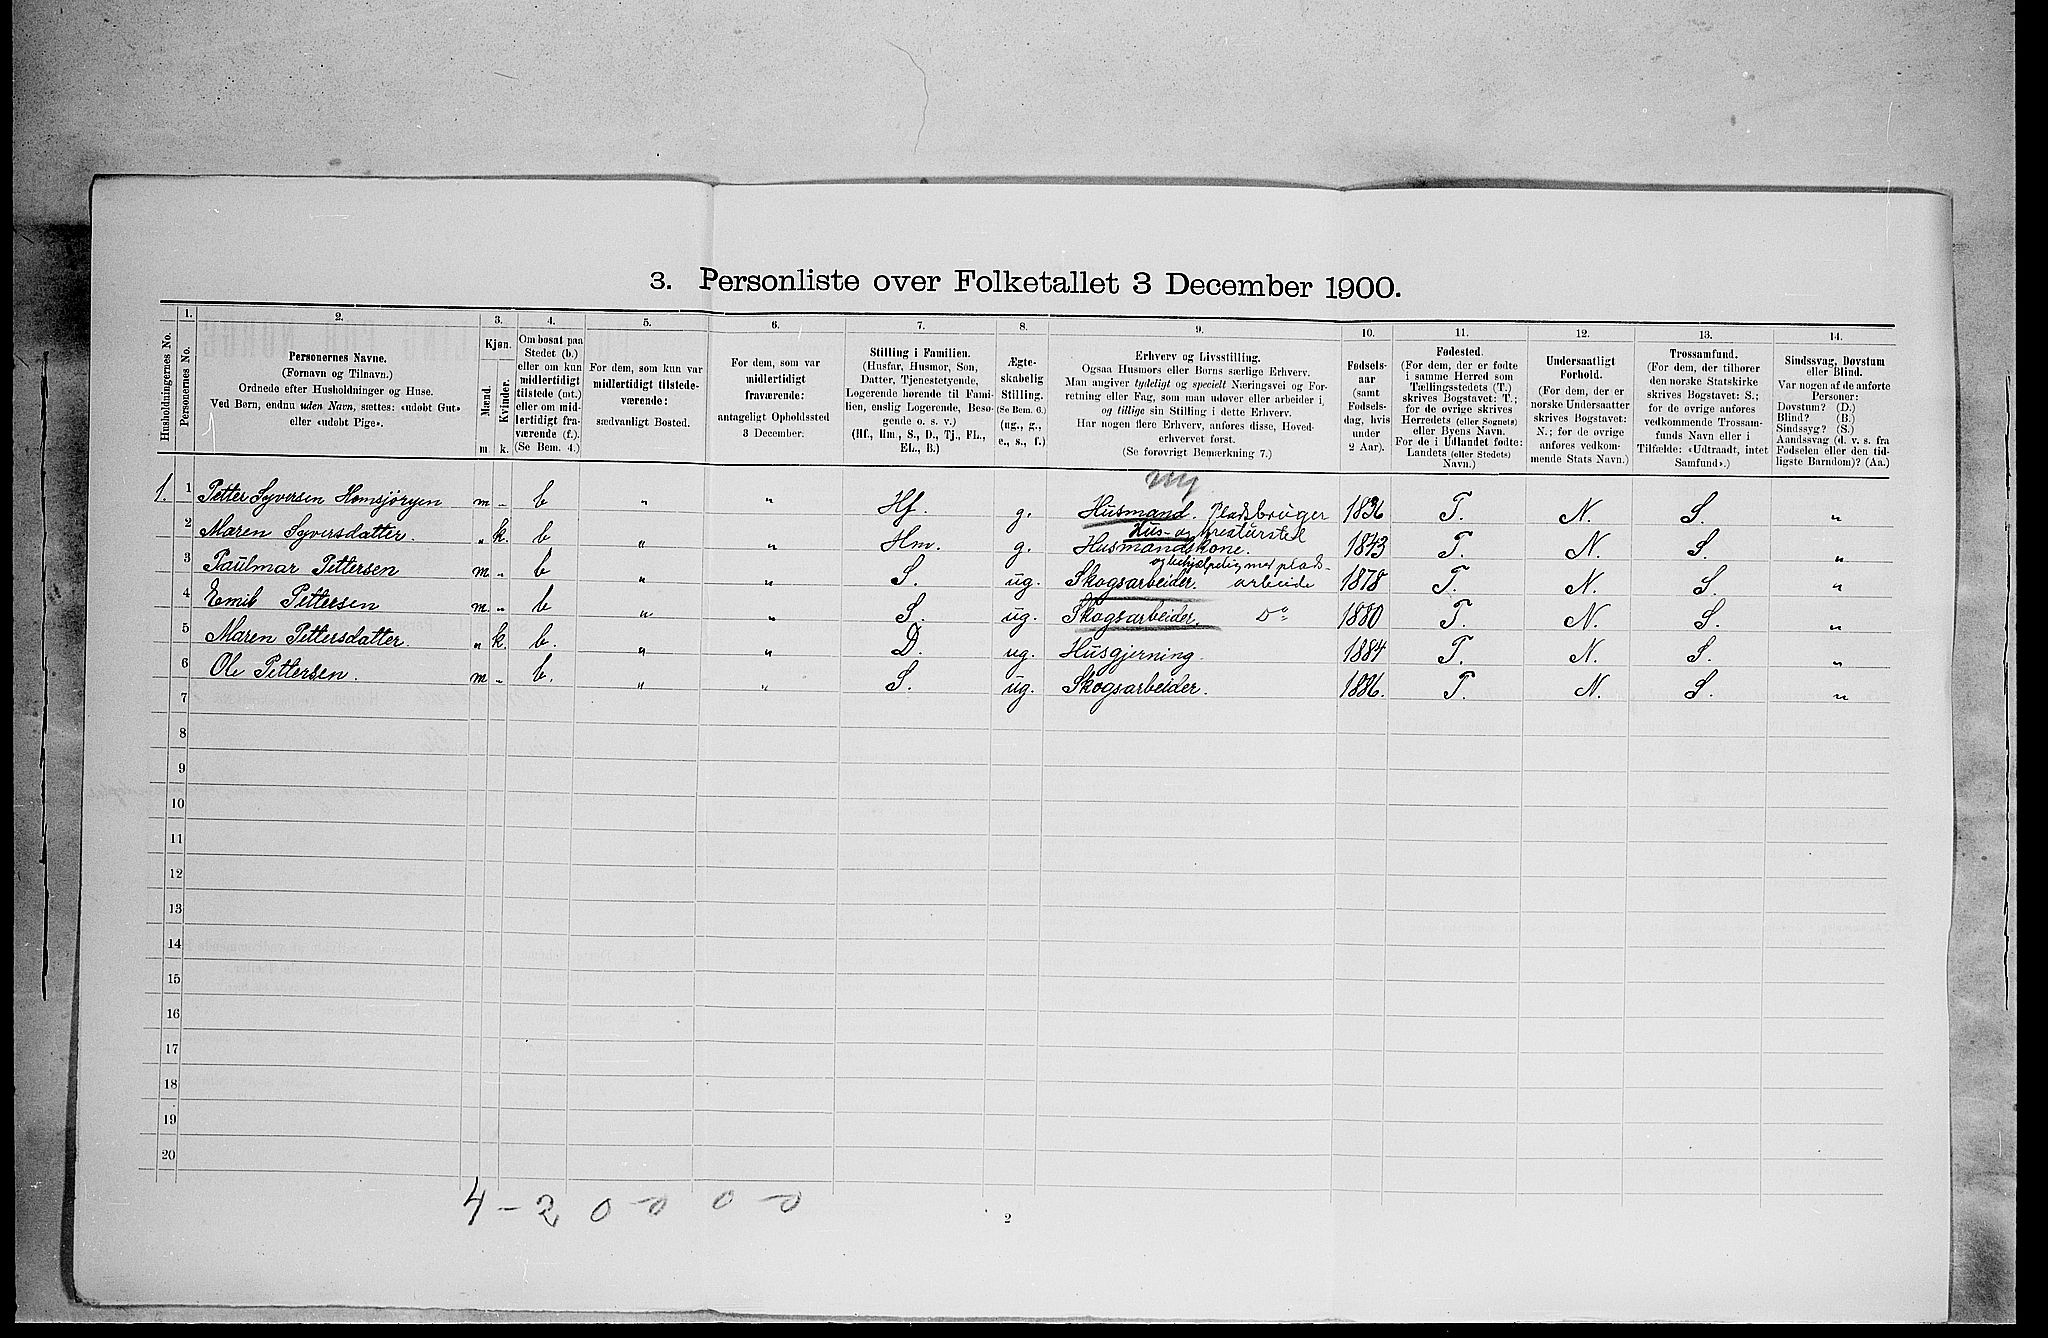 3. Personliste over Folketallet 3 December 1900.
Husholdningernes No.
1.
Personernes No.
2.
Personernes Navne.
(Fornavn og Tilnavn.)
Ordnede efter Husholdninger og Huse.
Ved Børn, endnu uden Navn, sættes: «udøbt Gut»
eller «udøbt Pige».
3.
Kjøn.
Mænd.
Kvinder.
m. k.
4.
Om bosat paa
Stedet (b.)
eller om kun
midlertidigt
tilstede (mt.)
eller om mid-
lertidigt fra-
værende (f.).
(Se Bem. 4.)
5.
For dem, som kun var
midlertidigt tilstede-
værende:
sædvanligt Bosted.
6.
For dem, som var
midlertidigt
fraværende:
antageligt Opholdssted
3 December.
7.
Stilling i Familien.
(Husfar, Husmor, Søn,
Datter, Tjenestetyende,
Logerende hørende til Fami-
lien, enslig Logerende, Besø-
gende o. s. v.)
(Hf., Hm., S., D., Tj., FL.,
EL., B.)
8.
Ægte-
skabelig
Stilling.
(Se Bem. 6.)
(ug., g.,
e., s., f.)
9.
Erhverv og Livsstilling.
Ogsaa Husmors eller Børns særlige Erhverv.
Man angiver tydeligt og specielt Næringsvei og For-
retning eller Fag, som man udøver eller arbeider i,
og tillige sin Stilling i dette Erhverv.
Har nogen flere Erhverv, anføres disse, Hoved-
erhvervet først.
(Se forøvrigt Bemærkning 7.)
10.
Fødsels-
aar
(samt
Fødsels-
dag, hvis
under
2 Aar).
11.
Fødested.
(For dem, der er fødte
i samme Herred som
Tællingsstedets (T.)
skrives Bogstavet: T.;
for de øvrige skrives
Herredets (eller Sognets)
eller Byens Navn.
For de i Udlandet fødte:
Landets (eller Stedets)
Navn.)
12.
Undersaatligt
Forhold.
(For dem, der er
norske Undersaatter
skrives Bogstavet:
N.; for de øvrige
anføres vedkom-
mende Stats Navn.)
13.
Trossamfund.
(For dem, der tilhører
den norske Statskirke
skrives Bogstavet: S.;
for de øvrige anføres
vedkommende Trossam-
funds Navn eller i
Tilfælde: «Udtraadt, intet
Samfund».)
14.
Sindssvag, Døvstum
eller Blind.
Var nogen af de anførte
Personer:
Døvstum? (D.)
Blind? (B.)
Sindssyg? (S.)
Aandssvag (d. v. s. fra
Fødselen eller den tid-
ligste Barndom)? (Aa.)
1. 1 Petter Syversen Homsjøryen m „ b „ „ Hf. g. Husmand. Pladsbruger 1836 T. N. S. „
Hus- og Kreaturstel
2 Maren Syversdatter. „ k. b „ „ Hm. g. Husmandskone. 1843 T. N. S. „
og behjælpelig med plads-
3 Paulmar Pettersen m. „ b „ „ S. ug. Skogsarbeider. arbeide 1878 T. N. S. „
4 Emil Pettersen m. „ b „ „ S. ug. Skogsarbeider. Do 1880 T. N. S. „
5 Maren Pettersdatter. „ k. b. „ „ D. ug. Husgjerning. 1884 T. N. S. „
6 Ole Pettersen. m „ b. „ „ S. ug. Skogsarbeider. 1886. T. N. S. „
7
8
9
10
11
12
13
14
15
16
17
18
19
20
4 - 2 0 0 0 0
2